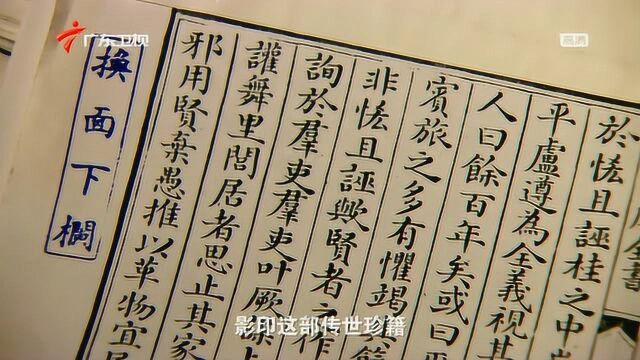 广东卫视
高清
全書
於恡且誣桂之中
平盧遵為全義視其
人曰餘百年矣或曰
賓旅之多有懼竭其
非恡且誣歟賢者之作
詢於羣吏羣吏叶厥
讙舞里閭居者思止其家
邪用賢棄愚推以革物宜
換面下欄
影印这部传世珍籍